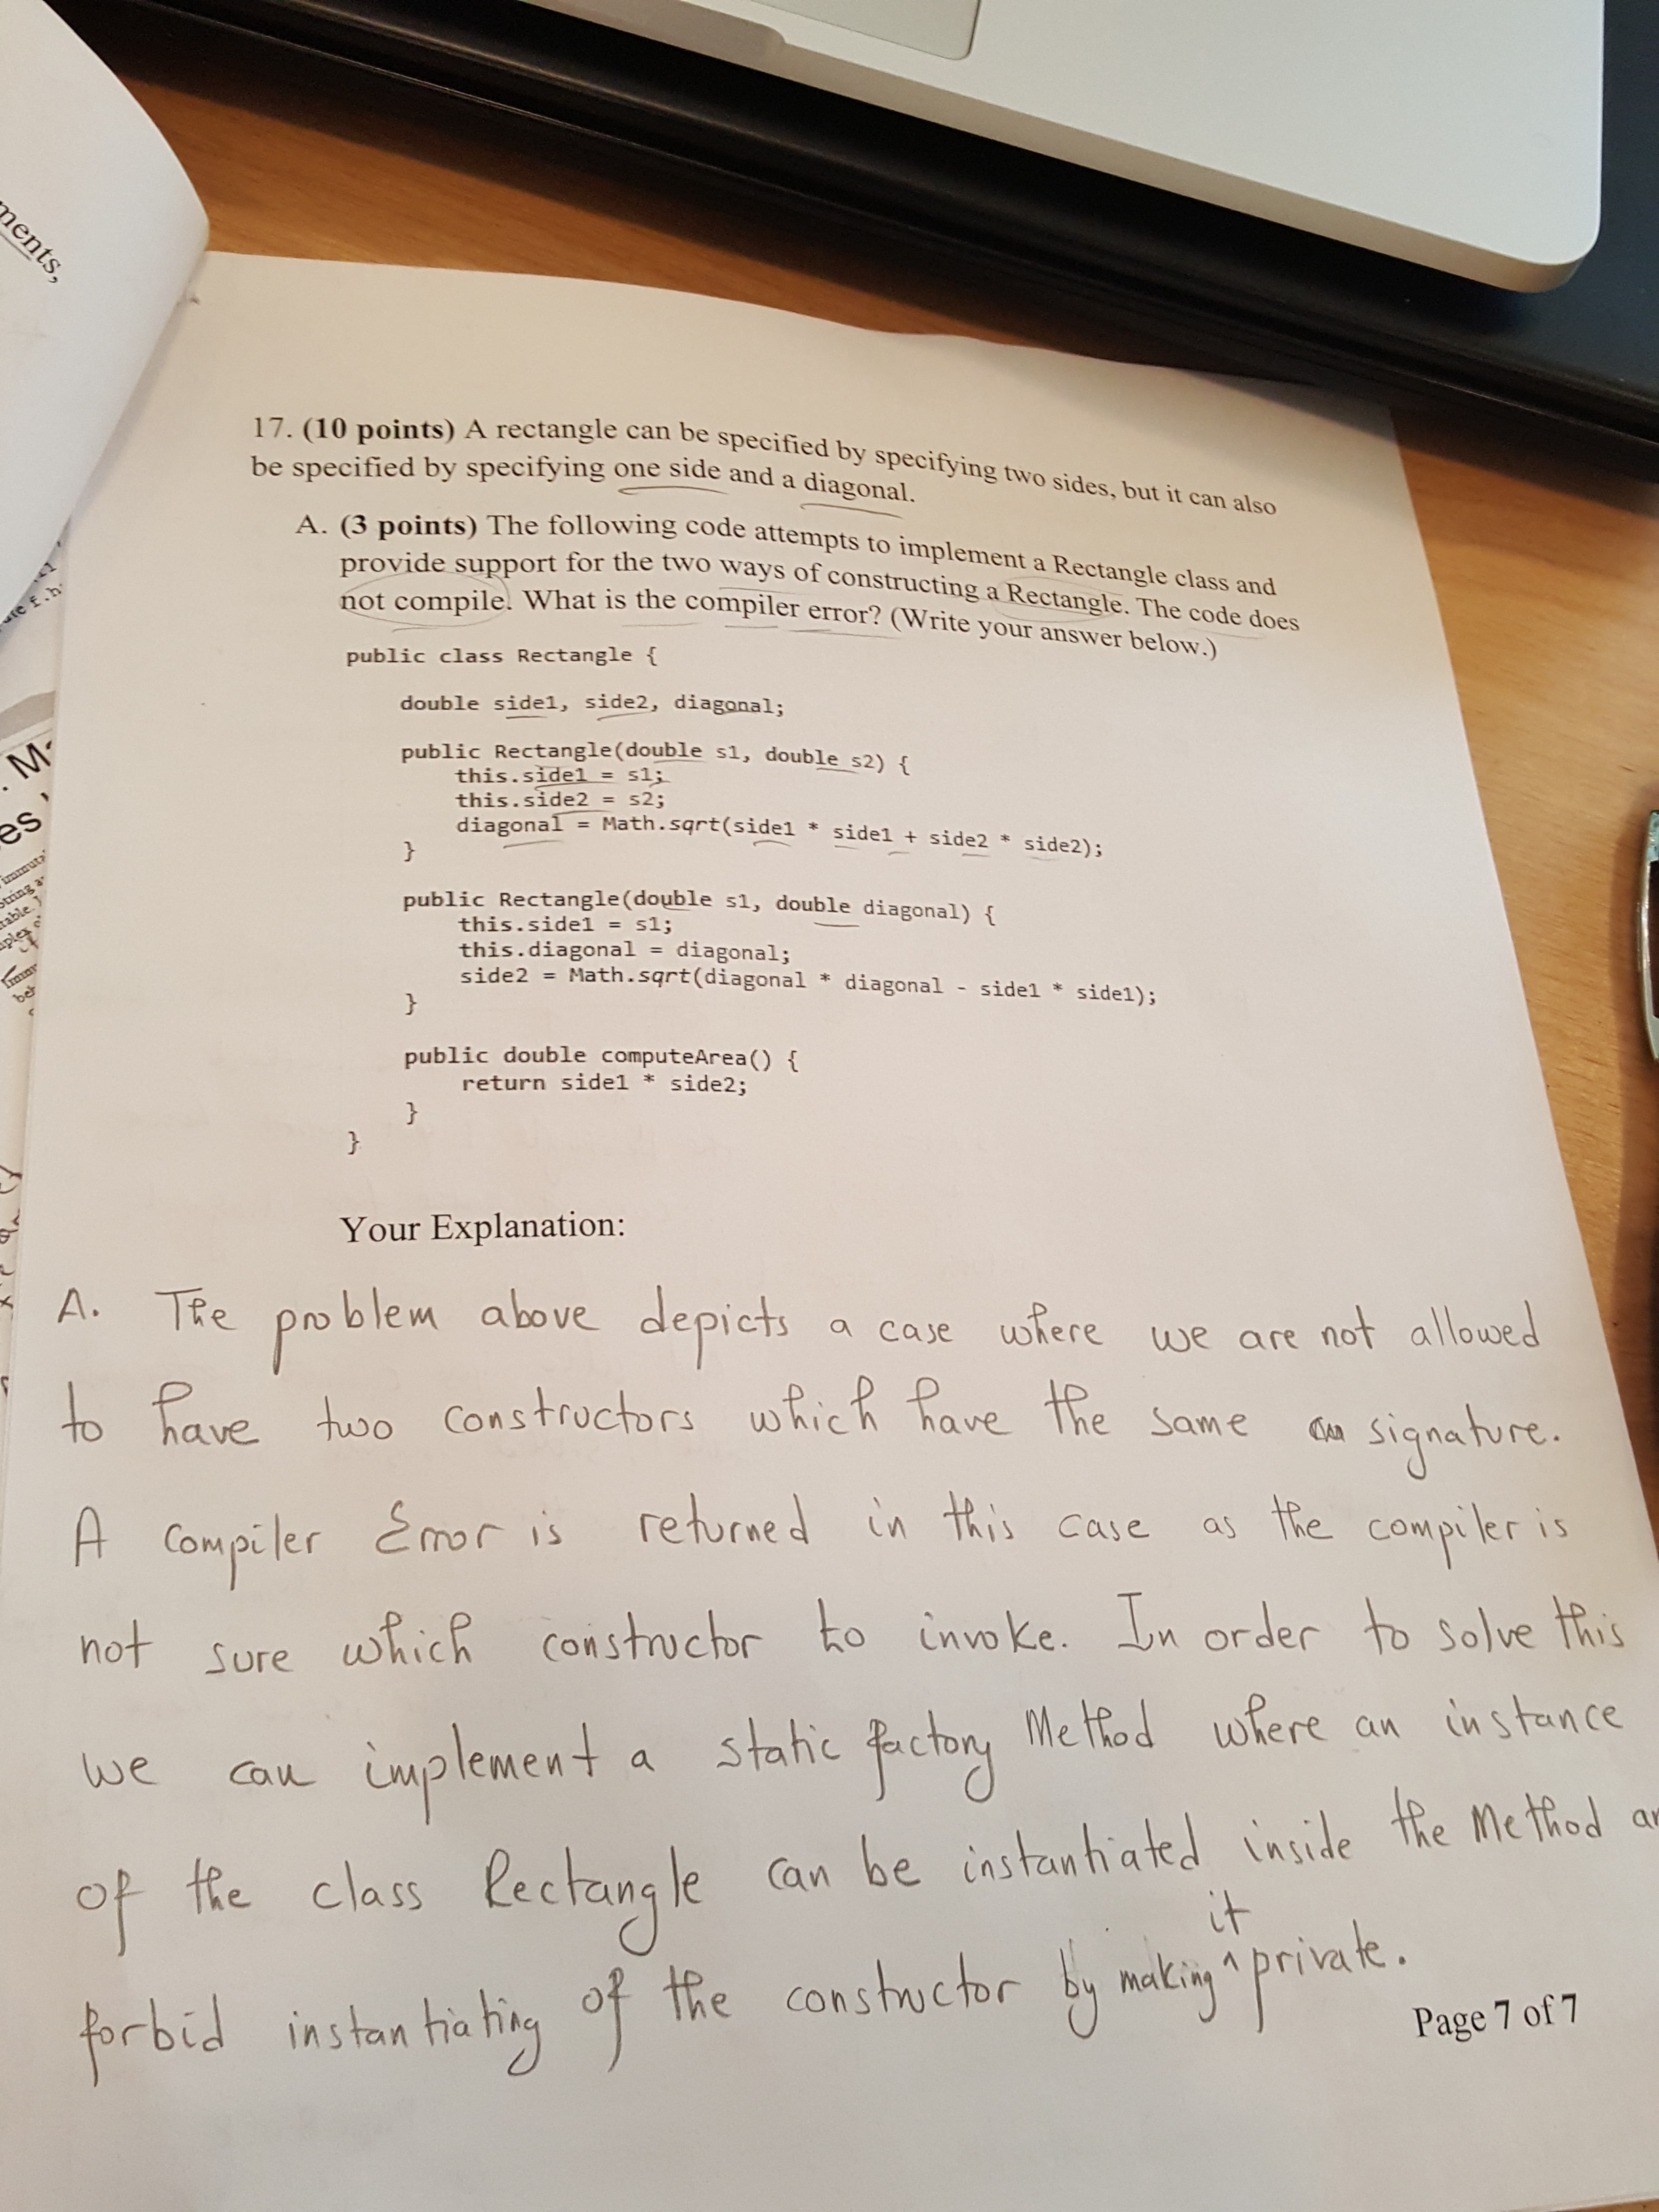 ments,
17. (10 points) A rectangle can be specified by specifying two sides, but it can also
be specified by specifying one side and a diagonal.
A. (3 points) The following code attempts to implement a Rectangle class and
provide support for the two ways of constructing a Rectangle. The code does
not compile. What is the compiler error? (Write your answer below.)
public class Rectangle {
double side1, side2, diagonal;
public Rectangle(double s1, double s2) {
this.side1 = s1;
this.side2 = s2;
diagonal = Math.sqrt(side1 * side1 + side2 * side2);
}
public Rectangle(double s1, double diagonal) {
this.side1 = s1;
this.diagonal = diagonal;
side2 = Math.sqrt(diagonal * diagonal - side1 * side1);
}
public double computeArea() {
return side1 * side2;
}
}
Your Explanation:
A. The problem above depicts a case where we are not allowed
to have two constructors which have the same signature.
A compiler Error is returned in this case as the compiler is
not sure which constructor to invoke. In order to solve this
we can implement a static factory Method where an instance
of the class Rectangle can be instantiated inside the Method
forbid instantiating of the constructor by making it private.
Page 7 of 7